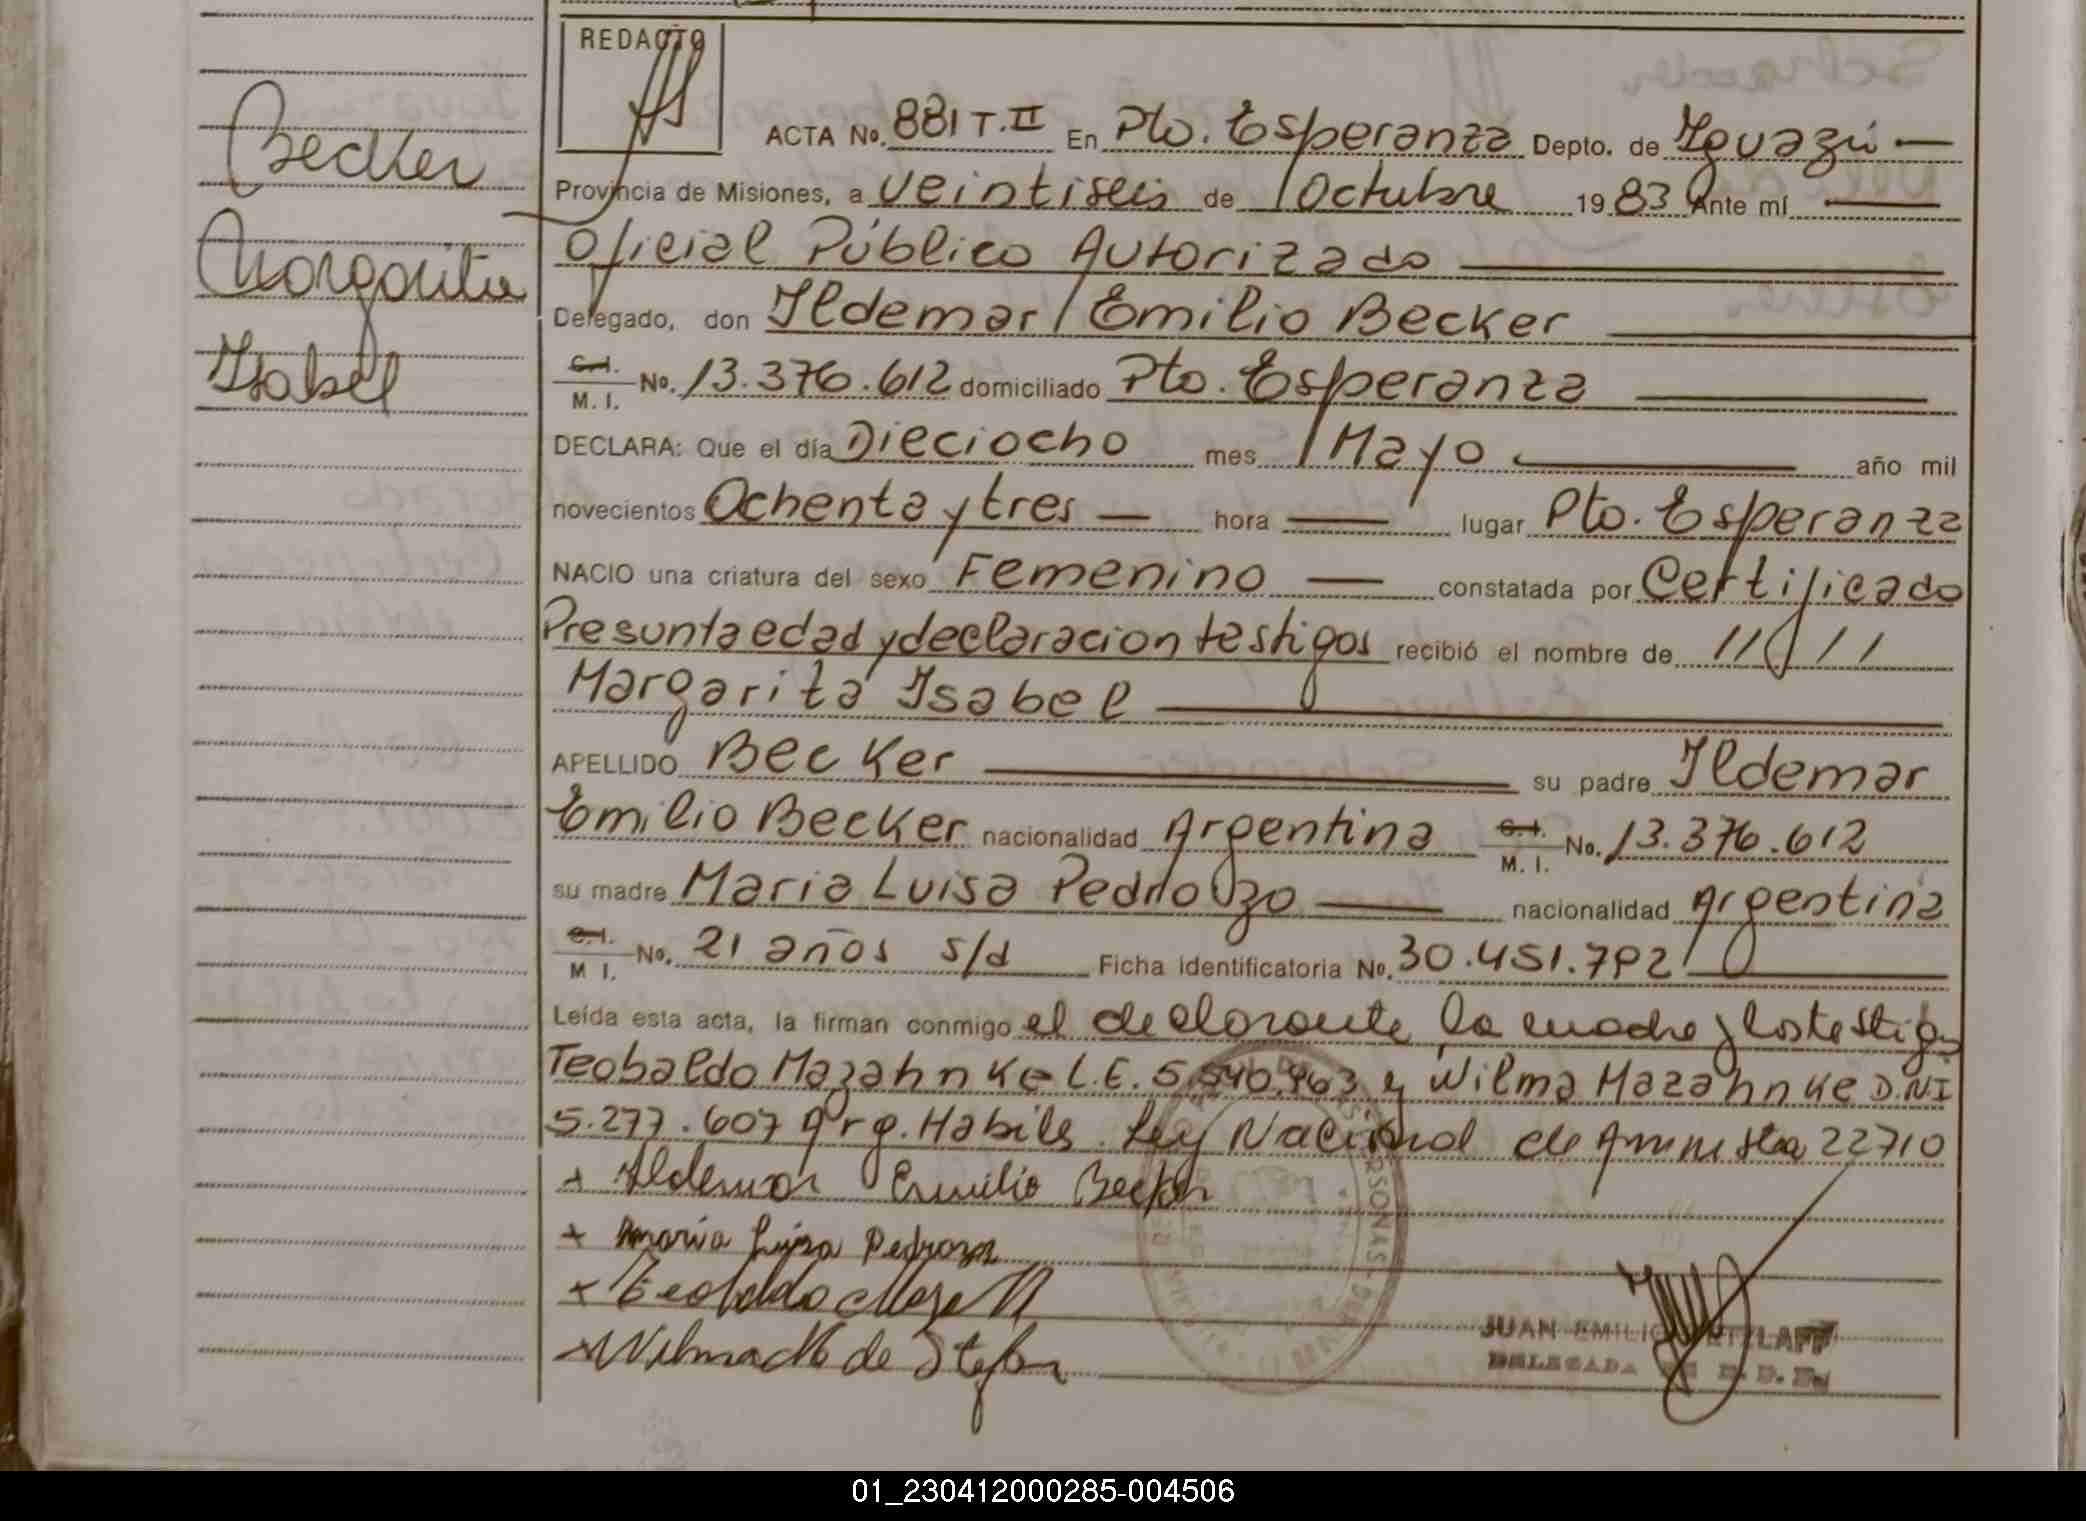 REDACTO
ACTA No. 881 T. II En Pto. Esperanza Depto. de Iguazú —
Becker
Provincia de Misiones, a veintiseis de Octubre 19 83 Ante mí —
Margarita
Oficial Público Autorizado
Delegado, don Ildemar Emilio Becker
Isabel
C.I. M. I. No. 13.376.612 domiciliado Pto. Esperanza
DECLARA: Que el día Dieciocho mes Mayo — año mil
novecientos Ochenta y tres — hora — lugar Pto. Esperanza
NACIO una criatura del sexo Femenino — constatada por Certificado
Presunta edad y declaracion testigos recibió el nombre de
Margarita Isabel
APELLIDO Becker — su padre Ildemar
Emilio Becker nacionalidad Argentina C.I. M. I. No. 13.376.612
su madre Maria Luisa Pedrozo — nacionalidad Argentina
C.I. M I. No. 21 años s/d Ficha Identificatoria No. 30.451.792
Leída esta acta, la firman conmigo el declarante, la madre y los testigos
Teobaldo Mazahnke L.E. 5.540.963 y Wilma Mazahnke D.N.I
5.277.607 Arg. Habils. Ley Nacional de Amnistia 22710
+ Ildemar Emilio Becker
+ Maria Luisa Pedrozo
x Teobaldo
x Wilma de Stefan
JUAN EMILIO
DELEGADA
01_230412000285-004506